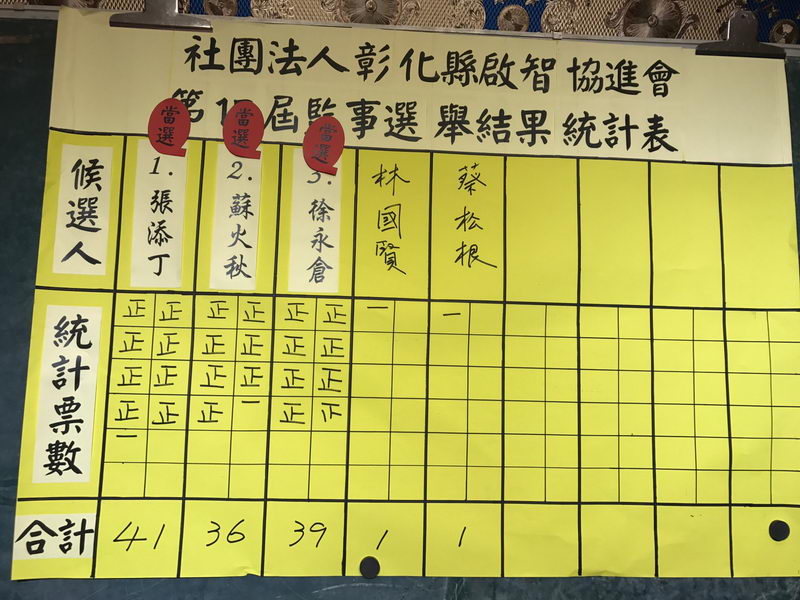 社團法人彰化縣啟智協進會
第1 屆監事選舉結果統計表
當選 當選 當選
候選人 1.張添丁 2.蘇火秋 3.徐永倉 林國賢 蔡松根
統計票數
正 正 正 正 正 正 一 一
正 正 正 正 正 正
正 正 正 正 正 正
正 正 正 一 正 正
一
合計 41 36 39 1 1